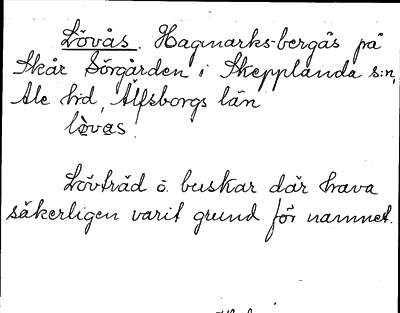 Lövås. Hagmarks-bergås på
Skår Sörgården i Skepplanda s:n,
Ale hd, Älfsborgs län
lövas.
Lövträd o. buskar där hava
säkerligen varit grund för namnet.